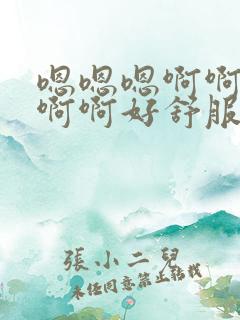 嗯嗯嗯啊啊
啊啊好舒服
張小二兒
未任同意禁止轉載